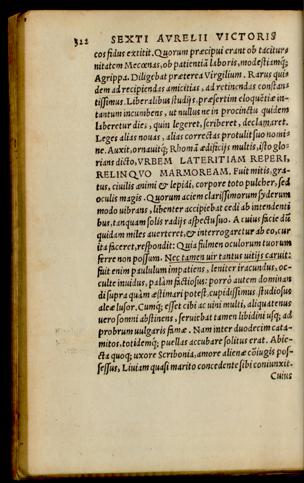 322 SEXTI AVRELII VICTORIS
cos fidus extitit. Quorum præcipui erant ob tacitur&
nitatem Mecœnas, ob patientiã laboris, modestiamq;
Agrippa. Diligebat præterea Virgilium. Rarus quidem
dem ad recipiendas amicitias, ad retinendas constan-
tissimus. Liberalibus studijs, præsertim eloquẽtiæ in-
tantum incumbens, ut nullus ne in procinctu quidem
laberetur dies, quin legeret, scriberet, declamaret.
Leges alias nouas, alias correctas protulit suo nomi-
ne. Auxit, ornauitq; Rhomã ædificijs multis, isto glo-
rians dicto, VRBEM LATERITIAM REPERI,
RELINQVO MARMOREAM. Fuit mitis, gra-
tus, ciuilis animi & lepidi, corpore toto pulcher, sed
oculis magis. Quorum aciem clarissimorum syderum
modo uibrans, libenter accipiebat cedi ab intendenti
bus, tanquam solis radijs aspectu suo. A cuius facie dũ
quidam miles auerteret, & interrogaretur ab eo, cur
ita faceret, respondit: Quia fulmen oculorum tuorum
ferre non possum. Nec tamen uir tantus uitijs caruit:
fuit enim paululum impatiens, leniter iracundus, oc-
culte inuidus, palàm factiosus: porrò autem dominan
di supra quàm æstimari potest, cupidissimus, studiosus
aleæ lusor. Cumq; esset cibi ac uini multi, aliquatenus
uero somni abstinens, seruiebat tamen libidini usq; ad
probrum uulgaris famæ. Nam inter duodecim cata-
mitos, totidemq; puellas accubare solitus erat. Abie-
cta quoq; uxore Scribonia, amore alienæ cõiugis pos-
sessus, Liuiam quasi marito concedente sibi coniunxit.
Cuius